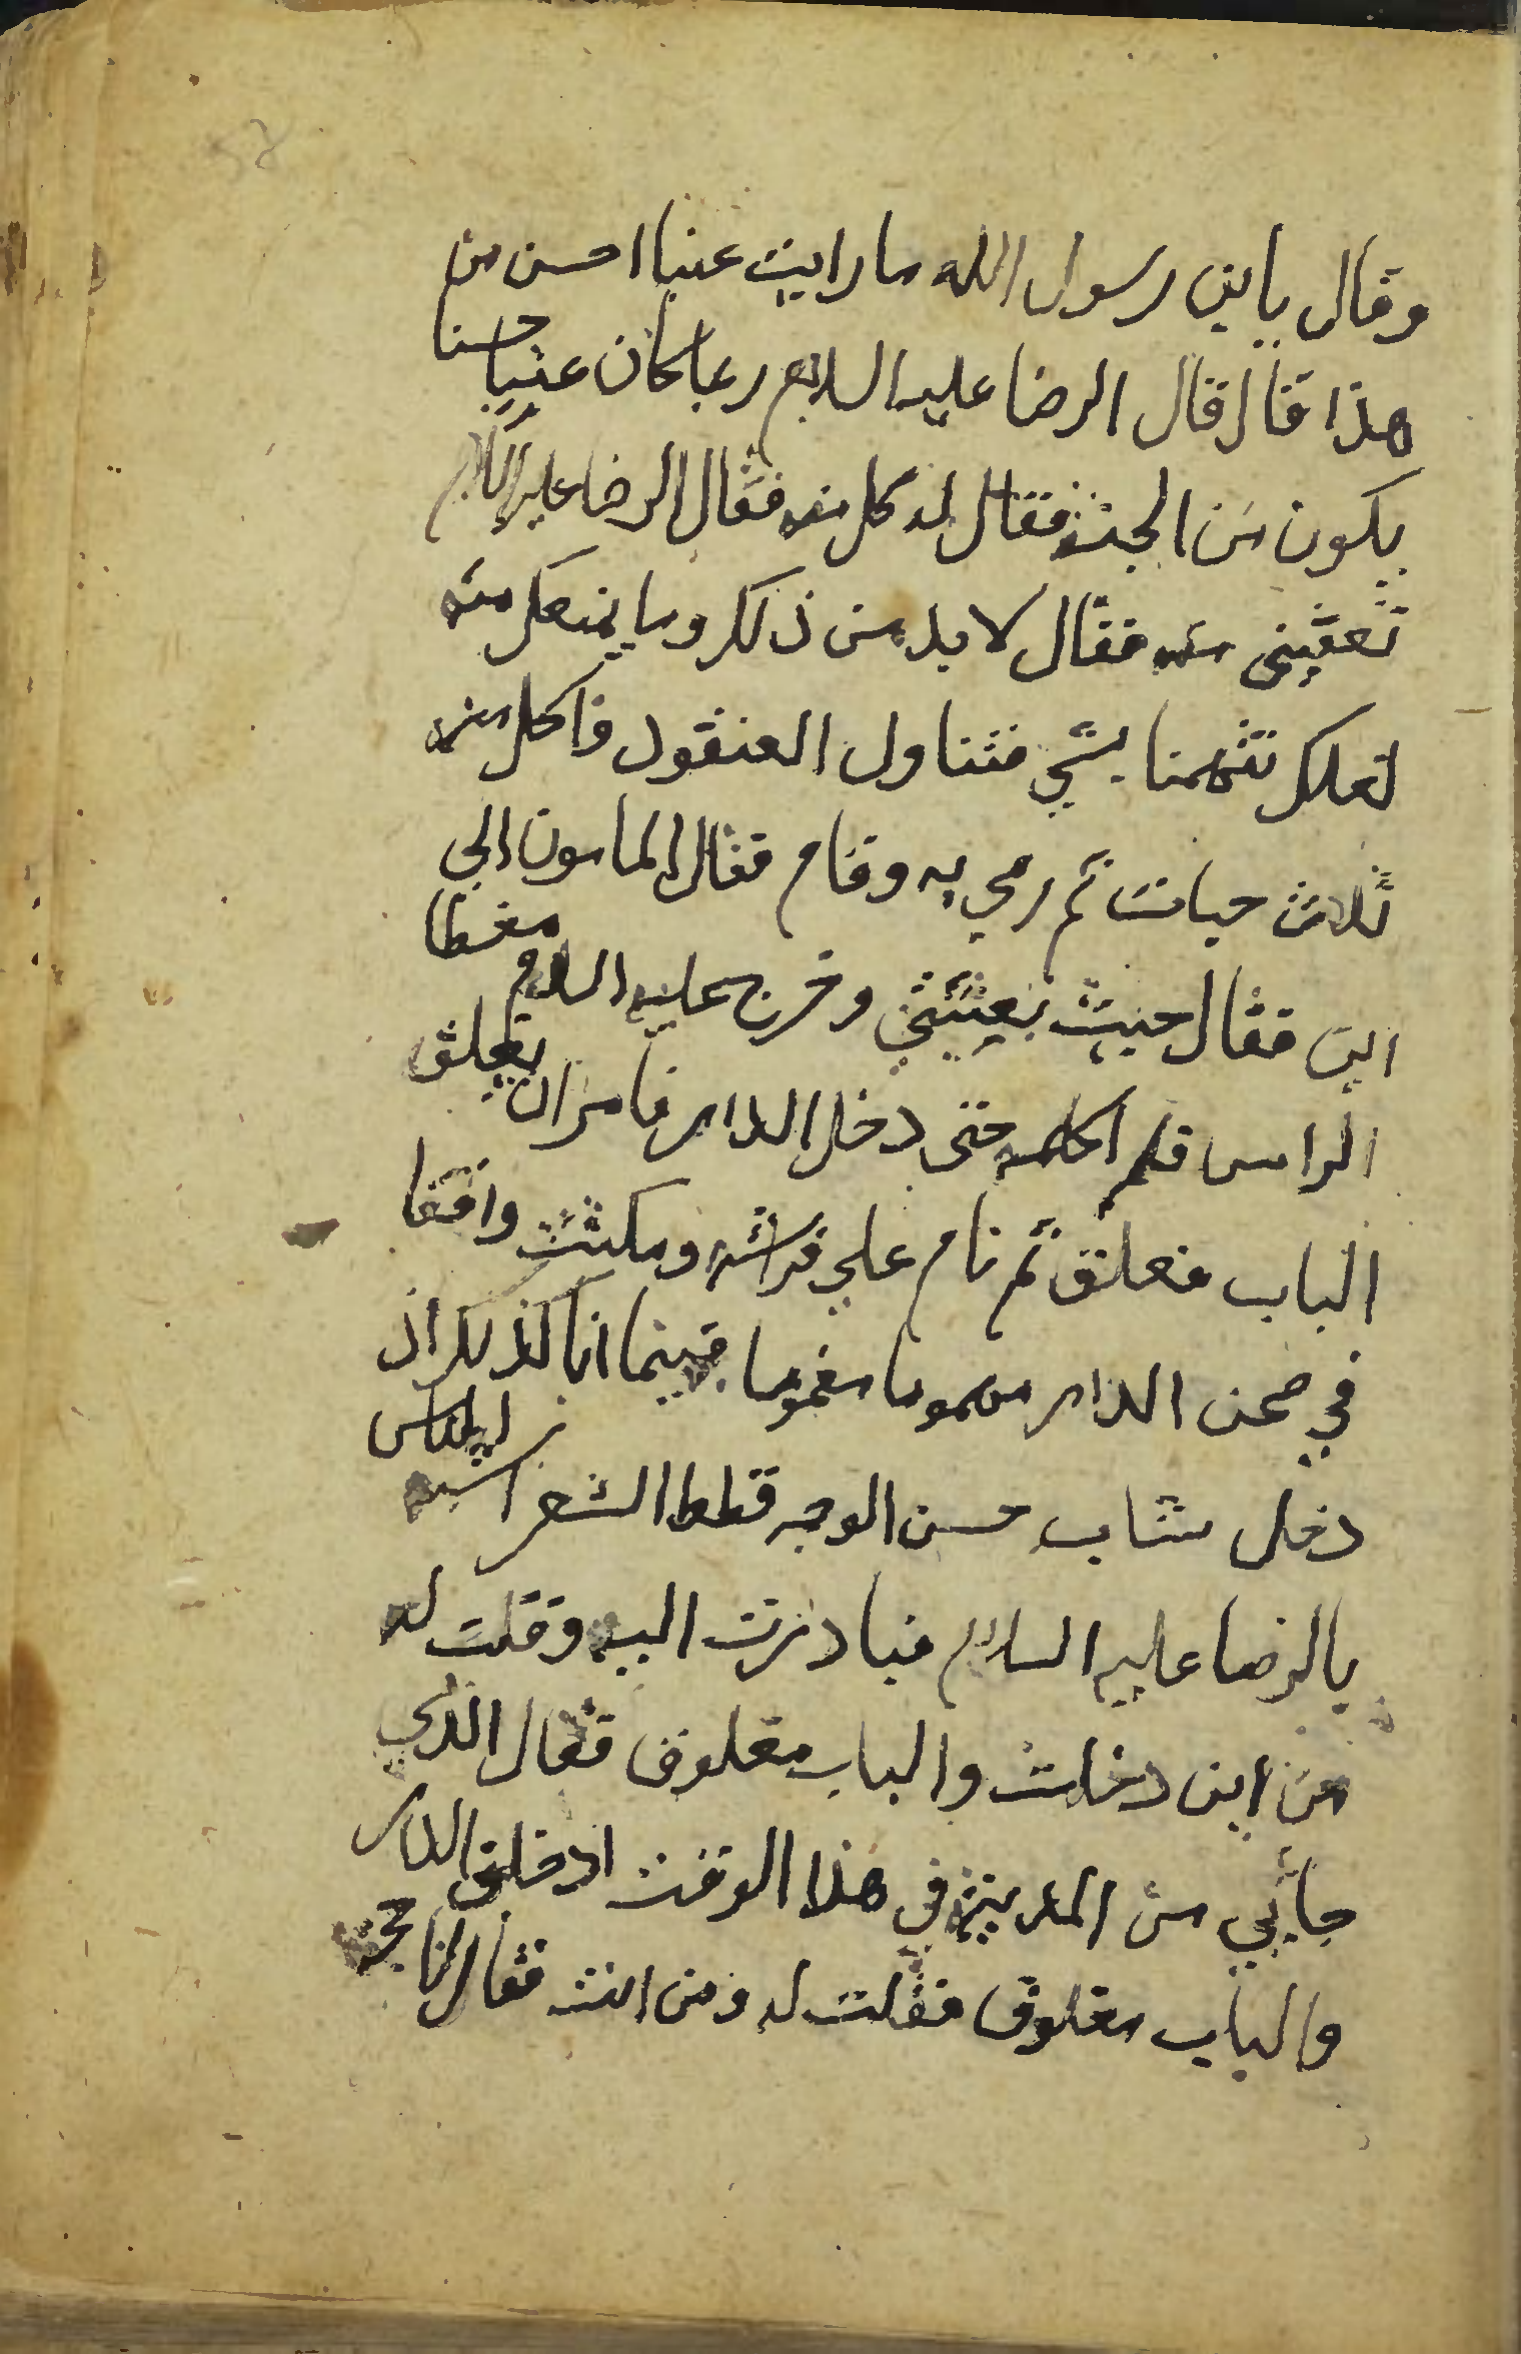 وقال يابن رسول الله ما رايت عنبا احسن من
هذا قال قال الرضا عليه السلام ربما كان عنبا حسنا
يكون من الجنة فقال له كل منه فقال الرضا عليه السلام
تعفينى منه فقال لا بد من ذلك وما يمنعك منه
لعلك تتهمنا بشي فتناول العنقود فاكل منه
ثلاث حبات ثم رمي به وقام فقال المامون الي
اين فقال حيث بعثتني وخرج عليه السلام مغطا
الراس فلم اكلمه حتى دخل الدار فامر ان يغلق
الباب فغلق ثم نام علي فراشه ومكثت واقفا
في صحن الدار مهموما مغموما فبينما انا كذلك اذ
دخل شاب حسن الوجه قطط الشعر اشبه الناس
بالرضا عليه السلام فبادرت اليه وقلت له
من اين دخلت والباب مغلوق فقال الذي
جأبي من المدينة في هذا الوقت ادخلني الدار
والباب مغلوق فقلت له ومن انت فقال انا حجة